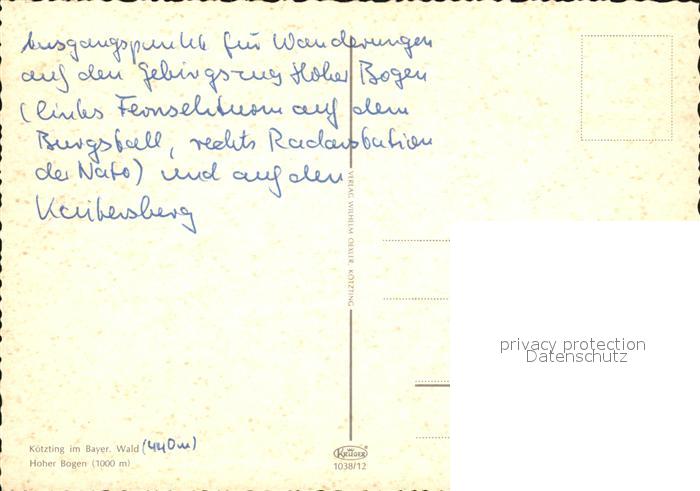 Ausgangspunkt für Wanderungen
auf den Gebirgszug Hoher Bogen
(links Fernsehturm auf dem
Burgstall, rechts Radarstation
der Nato) und auf den
Kaitersberg
VERLAG WILHELM OEXLER, KÖTZTING
privacy protection
Datenschutz
Kötzting im Bayer. Wald (440m)
Hoher Bogen (1000 m)
KRÜGER
1038/12